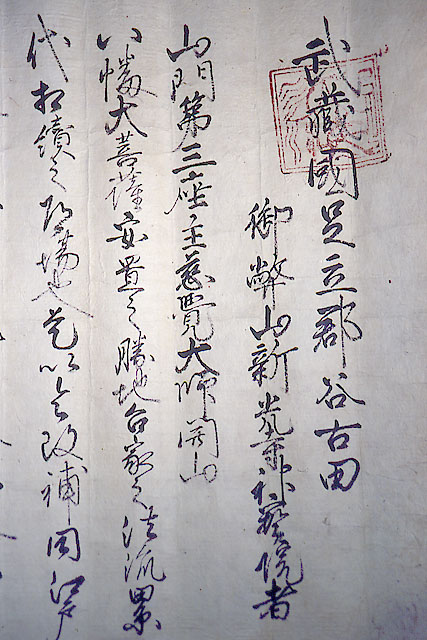 武藏國足立郡谷古田
御幣山新光寺神宮院者
山門第三座主慈覺大師開山
八幡大菩薩安置之勝地台家之法流累
代相續之道場也是以令改補同江戸